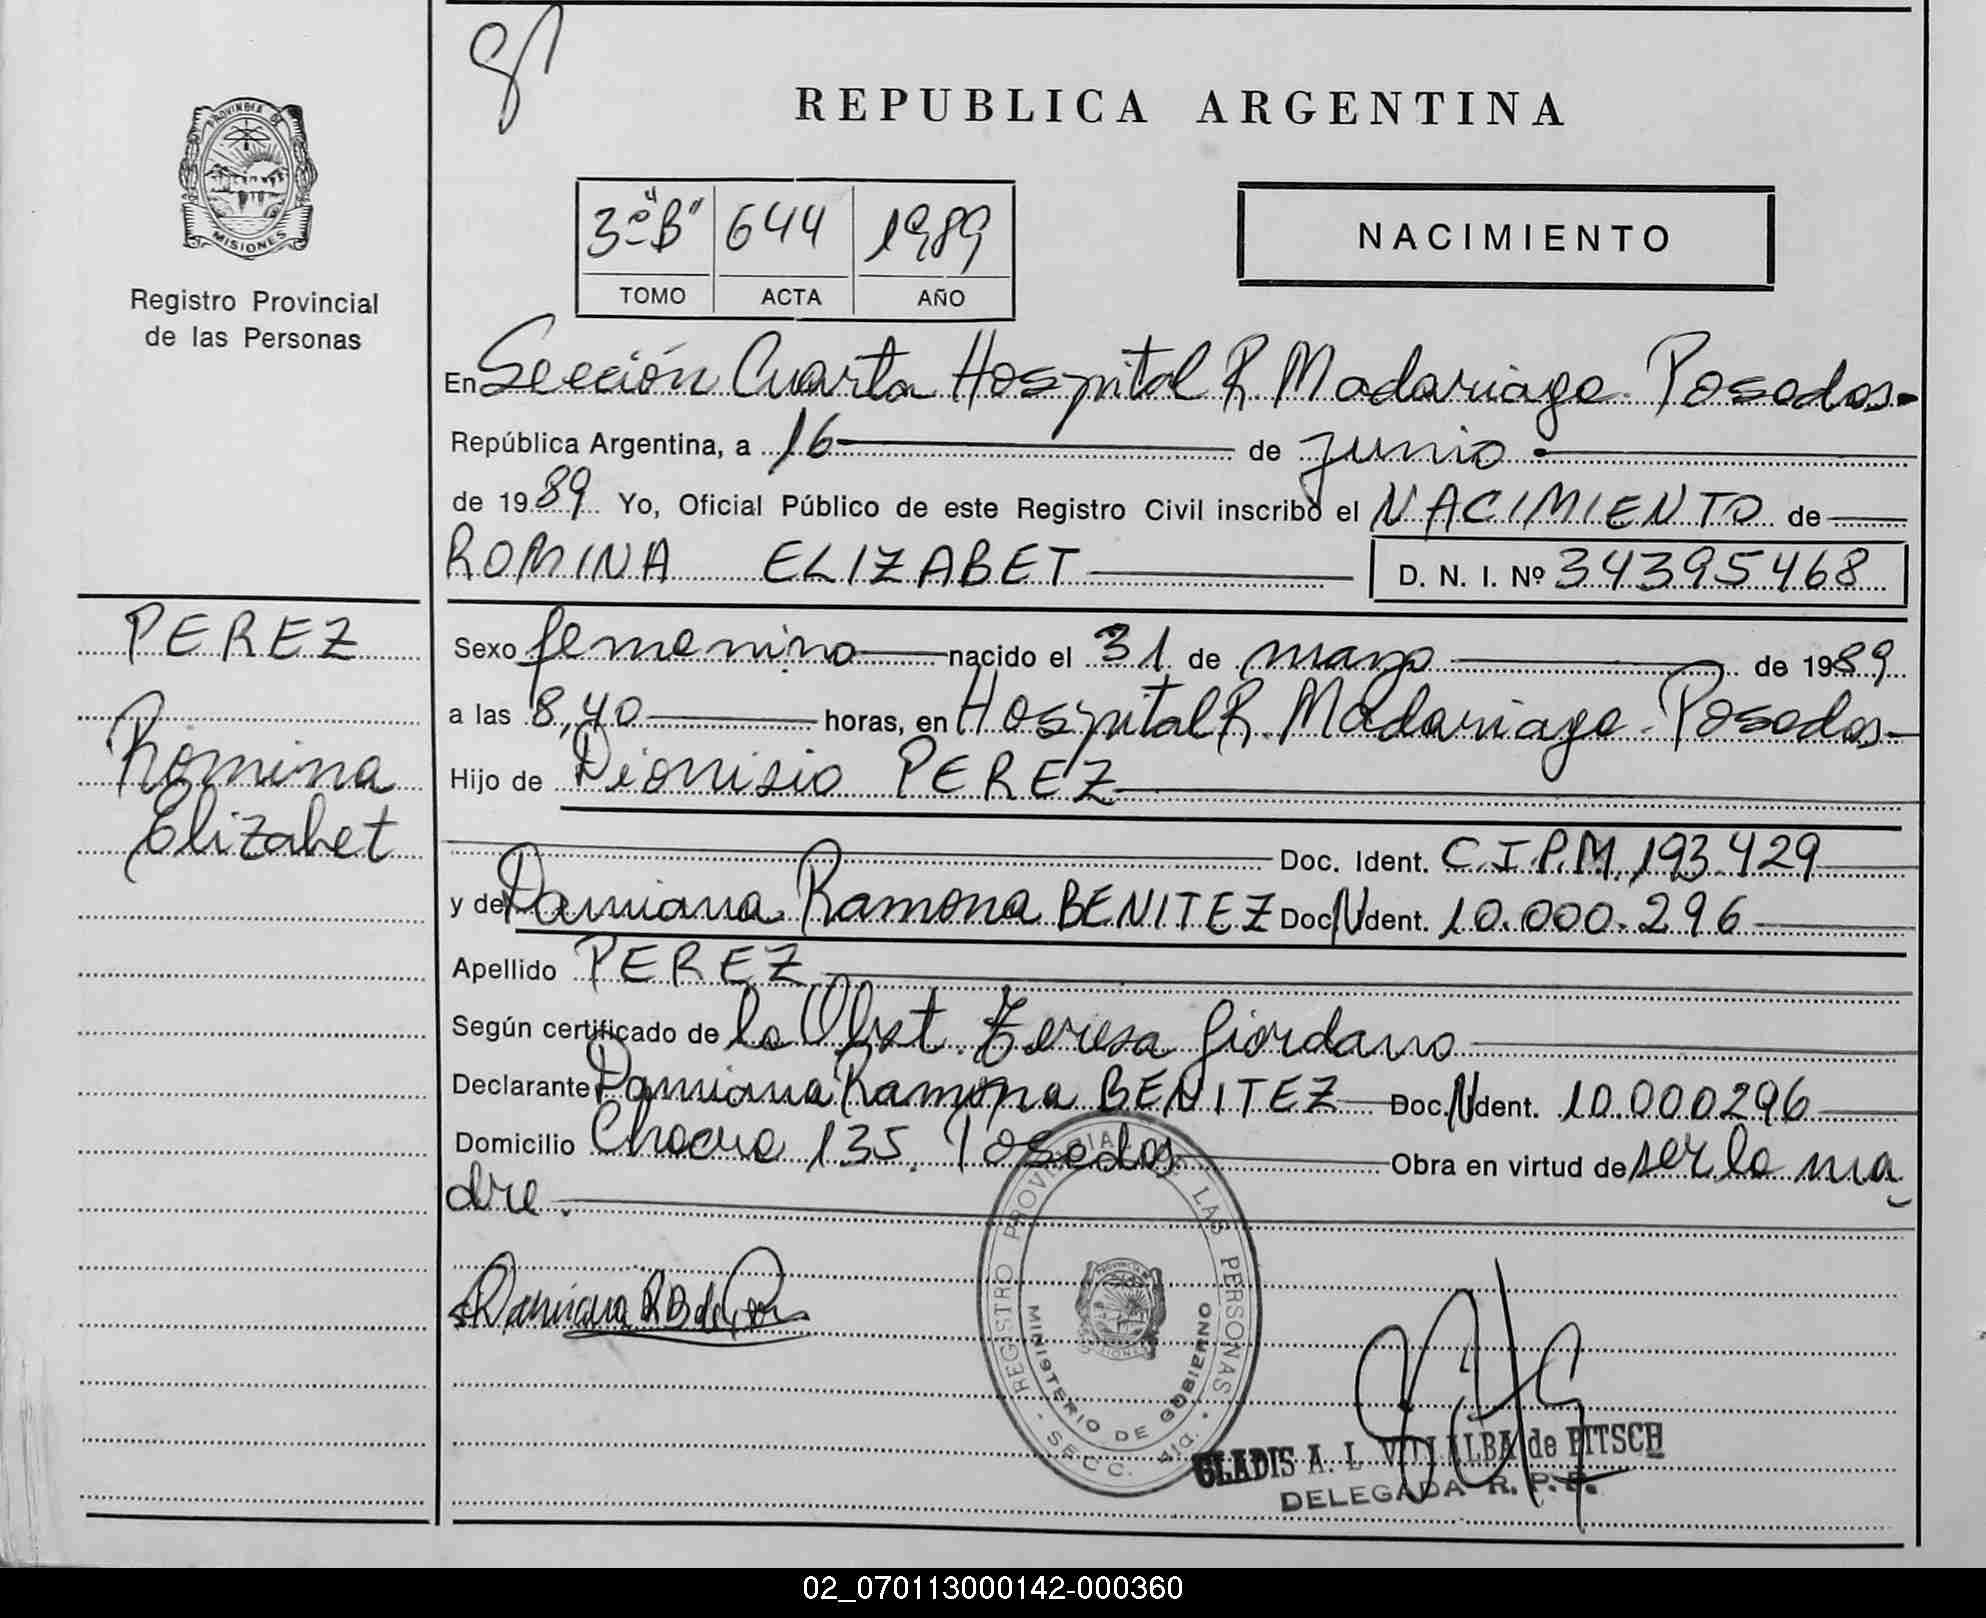 REPUBLICA ARGENTINA
PROVINCIA DE
MISIONES
Registro Provincial
de las Personas
3º "B" 644 1989
TOMO ACTA AÑO
NACIMIENTO
En Sección Cuarta Hospital R. Madariaga. Posadas.
República Argentina, a 16 de junio
de 1989 Yo, Oficial Público de este Registro Civil inscribo el NACIMIENTO de
ROMINA ELIZABET D. N. I. Nº 34395468
PEREZ
Romina
Elizabet
Sexo femenino nacido el 31 de marzo de 1989
a las 8,40 horas, en Hospital R. Madariaga. Posadas
Hijo de Dionisio PEREZ
Doc. Ident. C.I.P.M. 193.429
y de Damiana Ramona BENITEZ Doc. Ident. 10.000.296
Apellido PEREZ
Según certificado de la Obst. Teresa Giordano
Declarante Damiana Ramona BENITEZ Doc. Ident. 10.000296
Domicilio Chacra 135. Posadas Obra en virtud de ser la ma
dre.
Damiana R B de
REGISTRO PROVINCIAL DE LAS PERSONAS
MINISTERIO DE GOBIERNO
SECC. 4ta.
GLADIS A. L. VILLALBA de PITSCH
DELEGADA R. P. P.
02_070113000142-000360